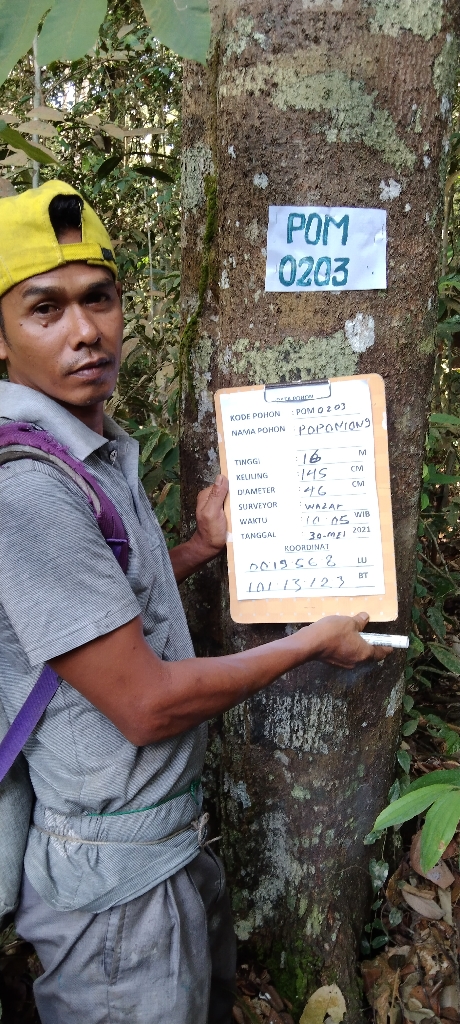 POM
0203
DATA POHON
KODE POHON : POM0203
NAMA POHON : POPONIONG
TINGGI : 16 M
KELILING : 145 CM
DIAMETER : 46 CM
SURVEYOR : WAZAR
WAKTU : 10:05 WIB
TANGGAL : 30-MEI 2021
KOORDINAT
LU
101.13.12.3 BT